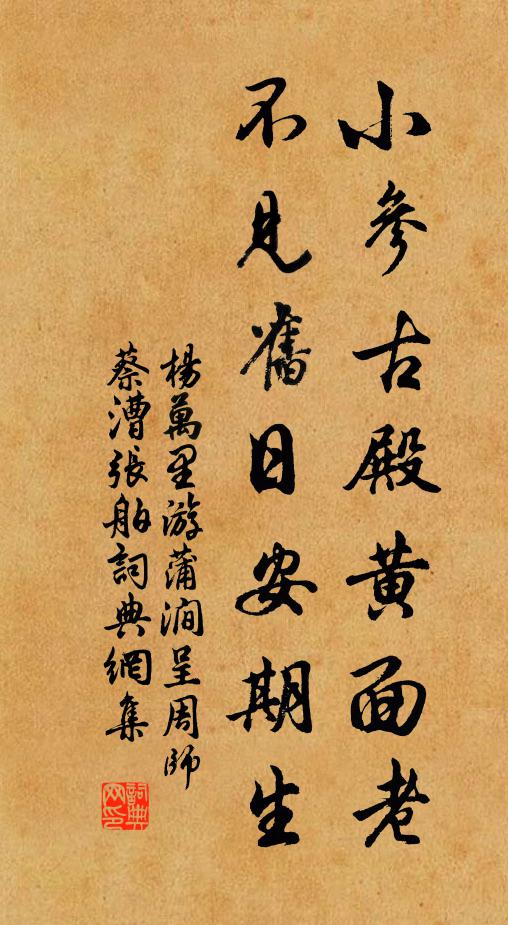 小參古殿黃面老
不見舊日安期生
楊萬里游蒲澗呈周師
蔡漕張舶詞典網集
詞典网印